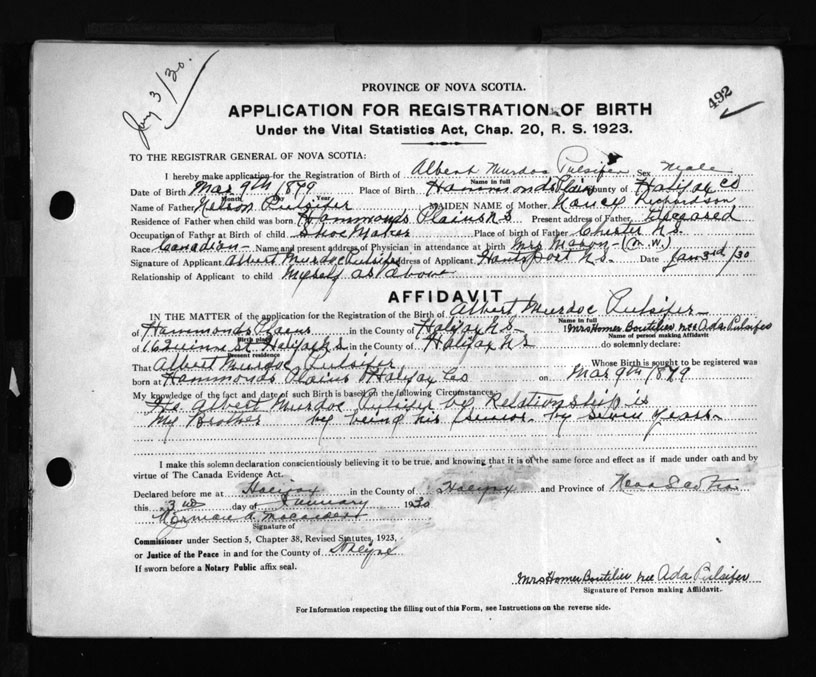 Jany 3/30.
492
PROVINCE OF NOVA SCOTIA.
APPLICATION FOR REGISTRATION OF BIRTH
Under the Vital Statistics Act, Chap. 20, R. S. 1923.
TO THE REGISTRAR GENERAL OF NOVA SCOTIA:
I hereby make application for the Registration of Birth of Albert Murdoc Pulsifer Sex Male
Name in full
Date of Birth Mar 9th 1879 Place of Birth Hammonds Plains County of Halifax Co
Month Day Year
Name of Father Nelson Pulsifer MAIDEN NAME of Mother Nancy Richardson
Residence of Father when child was born Hammonds Plains N S Present address of Father Deceased
Occupation of Father at Birth of child Shoe Maker Place of birth of Father Chester N.S.
Race Canadian Name and present address of Physician in attendance at birth Mrs Mason (M.W.)
Signature of Applicant Albert Murdoc Pulsifer Address of Applicant Hantsport N.S. Date Jan 3rd/30
Relationship of Applicant to child Myself as above
AFFIDAVIT
IN THE MATTER of the application for the Registration of the Birth of Albert Murdoc Pulsifer
Name in full
of Hammonds Plains in the County of Halifax N.S. I Mrs Homer Boutilier nee Ada Pulsifer
Birth place Name of person making Affidavit
of St. Halifax N.S. in the County of Halifax N S do solemnly declare:
Present residence
That Albert Murdoc Pulsifer Whose Birth is sought to be registered was
born at Hammonds Plains Halifax Co on Mar 9th 1879
My knowledge of the fact and date of such Birth is based on the following Circumstances:
Albert Murdoc Pulsifer by Relationship is
My Brother by being his Senior by seven years
I make this solemn declaration conscientiously believing it to be true, and knowing that it is of the same force and effect as if made under oath and by
virtue of The Canada Evidence Act.
Declared before me at Halifax in the County of Halifax and Province of Nova Scotia
this 3rd day of January 1930
Norman A.
Signature of
Commissioner under Section 5, Chapter 38, Revised Statutes, 1923,
or Justice of the Peace in and for the County of Halifax
If sworn before a Notary Public affix seal.
Mrs Homer Boutilier nee Ada Pulsifer
Signature of Person making Affidavit.
For Information respecting the filling out of this Form, see Instructions on the reverse side.